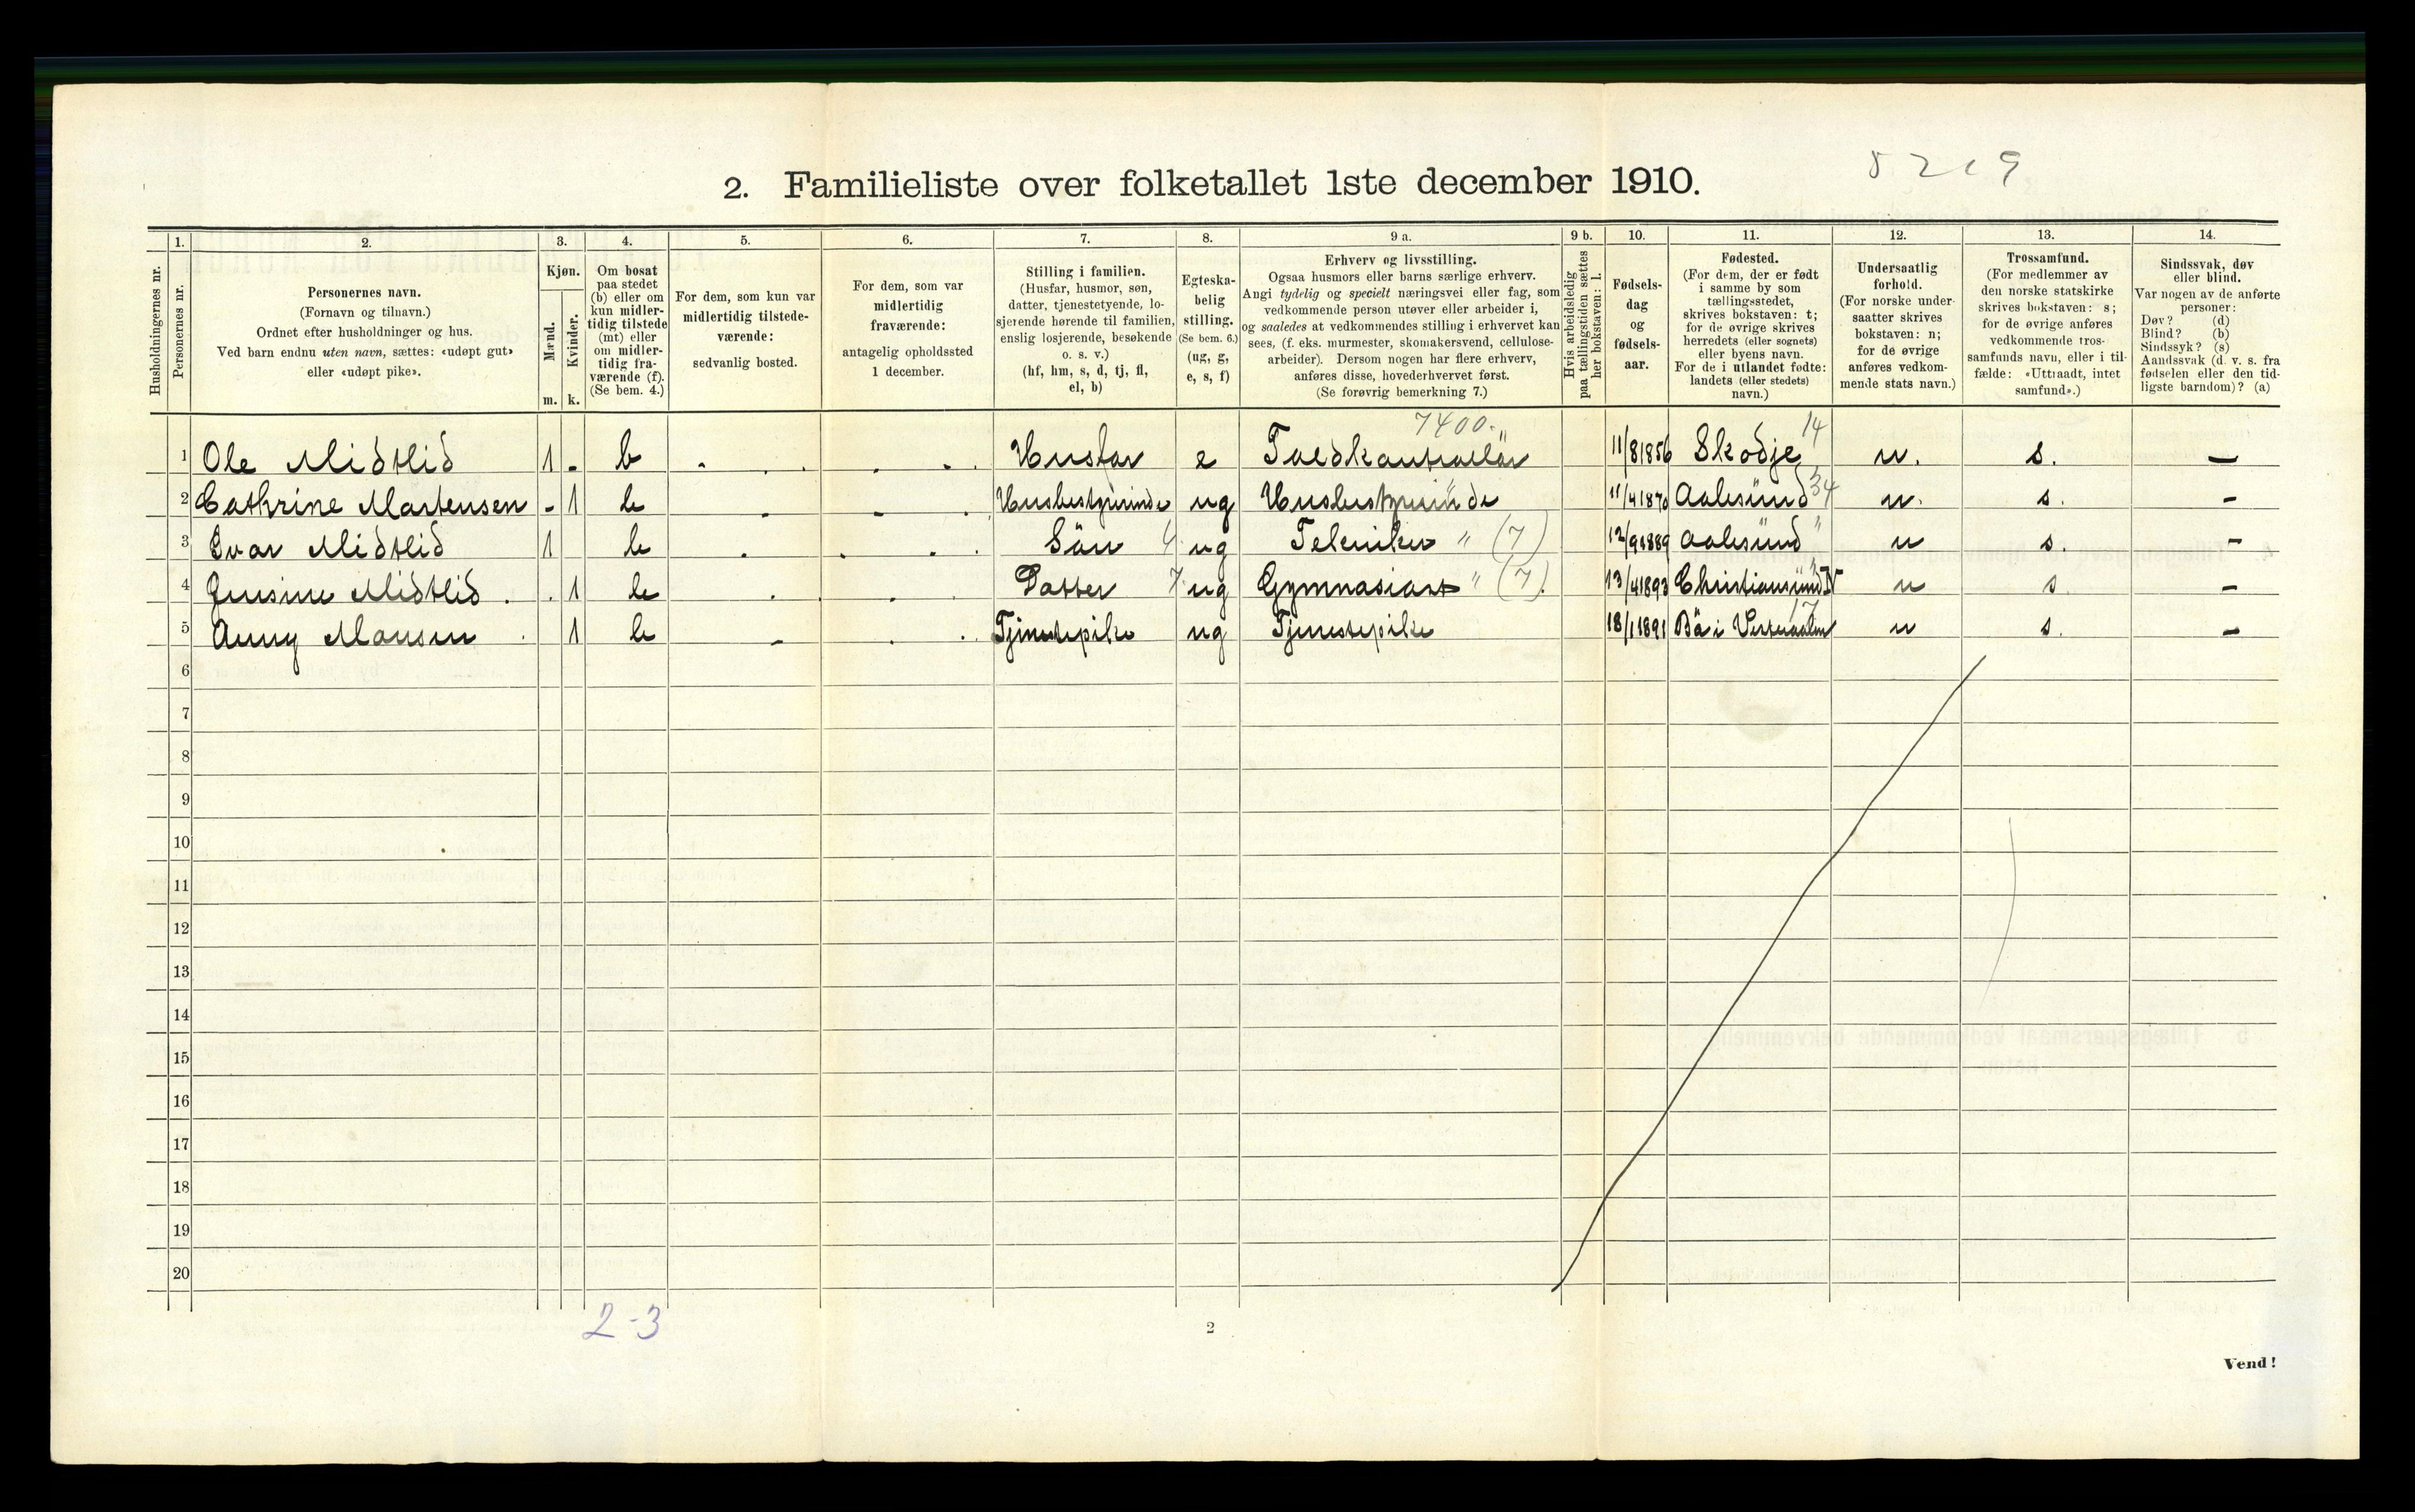 2. Familieliste over folketallet 1ste december 1910.
5219
1. 2. 3. 4. 5. 6. 7. 8. 9 a. 9 b. 10. 11. 12. 13. 14.
Husholdningernes nr.
Personernes nr.
Personernes navn.
(Fornavn og tilnavn.)
Ordnet efter husholdninger og hus.
Ved barn endnu uten navn, sættes: «udøpt gut»
eller «udøpt pike».
Kjøn.
Mænd.
Kvinder.
m. k.
Om bosat
paa stedet
(b) eller om
kun midler-
tidig tilstede
(mt) eller
om midler-
tidig fra-
værende (f).
(Se bem. 4.)
For dem, som kun var
midlertidig tilstede-
værende:
sedvanlig bosted.
For dem, som var
midlertidig
fraværende:
antagelig opholdssted
1 december.
Stilling i familien.
(Husfar, husmor, søn,
datter, tjenestetyende, lo-
sjerende hørende til familien,
enslig losjerende, besøkende
o. s. v.)
(hf, hm, s, d, tj, fl,
el, b)
Egteska-
belig
stilling.
(Se bem. 6.)
(ug, g,
e, s, f)
Erhverv og livsstilling.
Ogsaa husmors eller barns særlige erhverv.
Angi tydelig og specielt næringsvei eller fag, som
vedkommende person utøver eller arbeider i,
og saaledes at vedkommendes stilling i erhvervet kan
sees, (f. eks. murmester, skomakersvend, cellulose-
arbeider). Dersom nogen har flere erhverv,
anføres disse, hovederhvervet først.
(Se forøvrig bemerkning 7.)
Hvis arbeidsledig
paa tællingstiden sættes
her bokstaven: l.
Fødsels-
dag
og
fødsels-
aar.
Fødested.
(For dem, der er født
i samme by som
tællingsstedet,
skrives bokstaven: t;
for de øvrige skrives
herredets (eller sognets)
eller byens navn.
For de i utlandet fødte:
landets (eller stedets)
navn.)
Undersaatlig
forhold.
(For norske under-
saatter skrives
bokstaven: n;
for de øvrige
anføres vedkom-
mende stats navn.)
Trossamfund.
(For medlemmer av
den norske statskirke
skrives bokstaven: s;
for de øvrige anføres
vedkommende tros-
samfunds navn, eller i til-
fælde: «Uttraadt, intet
samfund».)
Sindssvak, døv
eller blind.
Var nogen av de anførte
personer:
Døv? (d)
Blind? (b)
Sindssyk? (s)
Aandssvak (d. v. s. fra
fødselen eller den tid-
ligste barndom)? (a)
7400. 14
1 Ole Midtlid 1 - b Husfar e Toldkontrollør 11/8 1856 Skodje n. s. —
2 Cathrine Martensen - 1 b Husbestyrerinde ug Husbestyrerinde 11/4 1870 Aalesund 34 n. s. -
3 Ivar Midtlid 1 b Sön ug Tekniker " (7) 12/9 1889 Aalesund " n s. -
4 Jensine Midtlid . 1 b Datter ug Gymnasiast " (7) 13/4 1893 Christiansund N n s -
17
5 Anny Monsen . 1 b Tjenestepike ug Tjenestepike 18/1 1891 Bö i Vesteraalen n s. -
6
7
8
9
10
11
12
13
14
15
16
17
18
19
20
2-3
2
Vend!